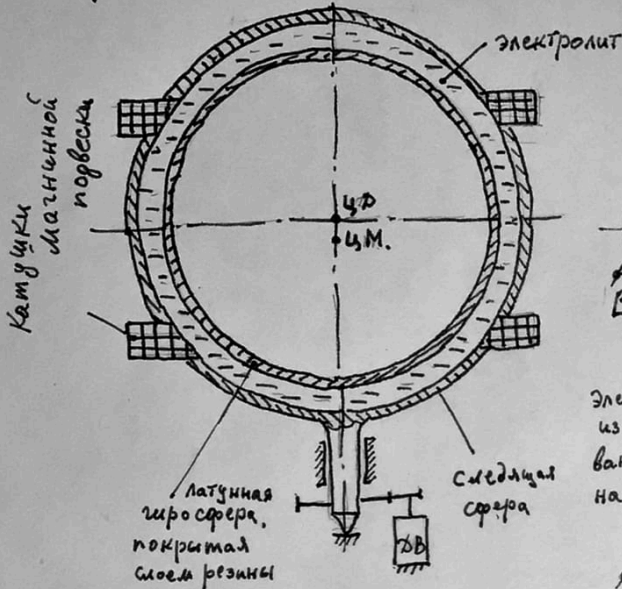 электролит
Катушки
магнитной
подвески
ЦД
ЦМ.
латунная
гиросфера,
покрытая
слоем резины
Следящая
сфера
ДВ
Эле
из
ван
на